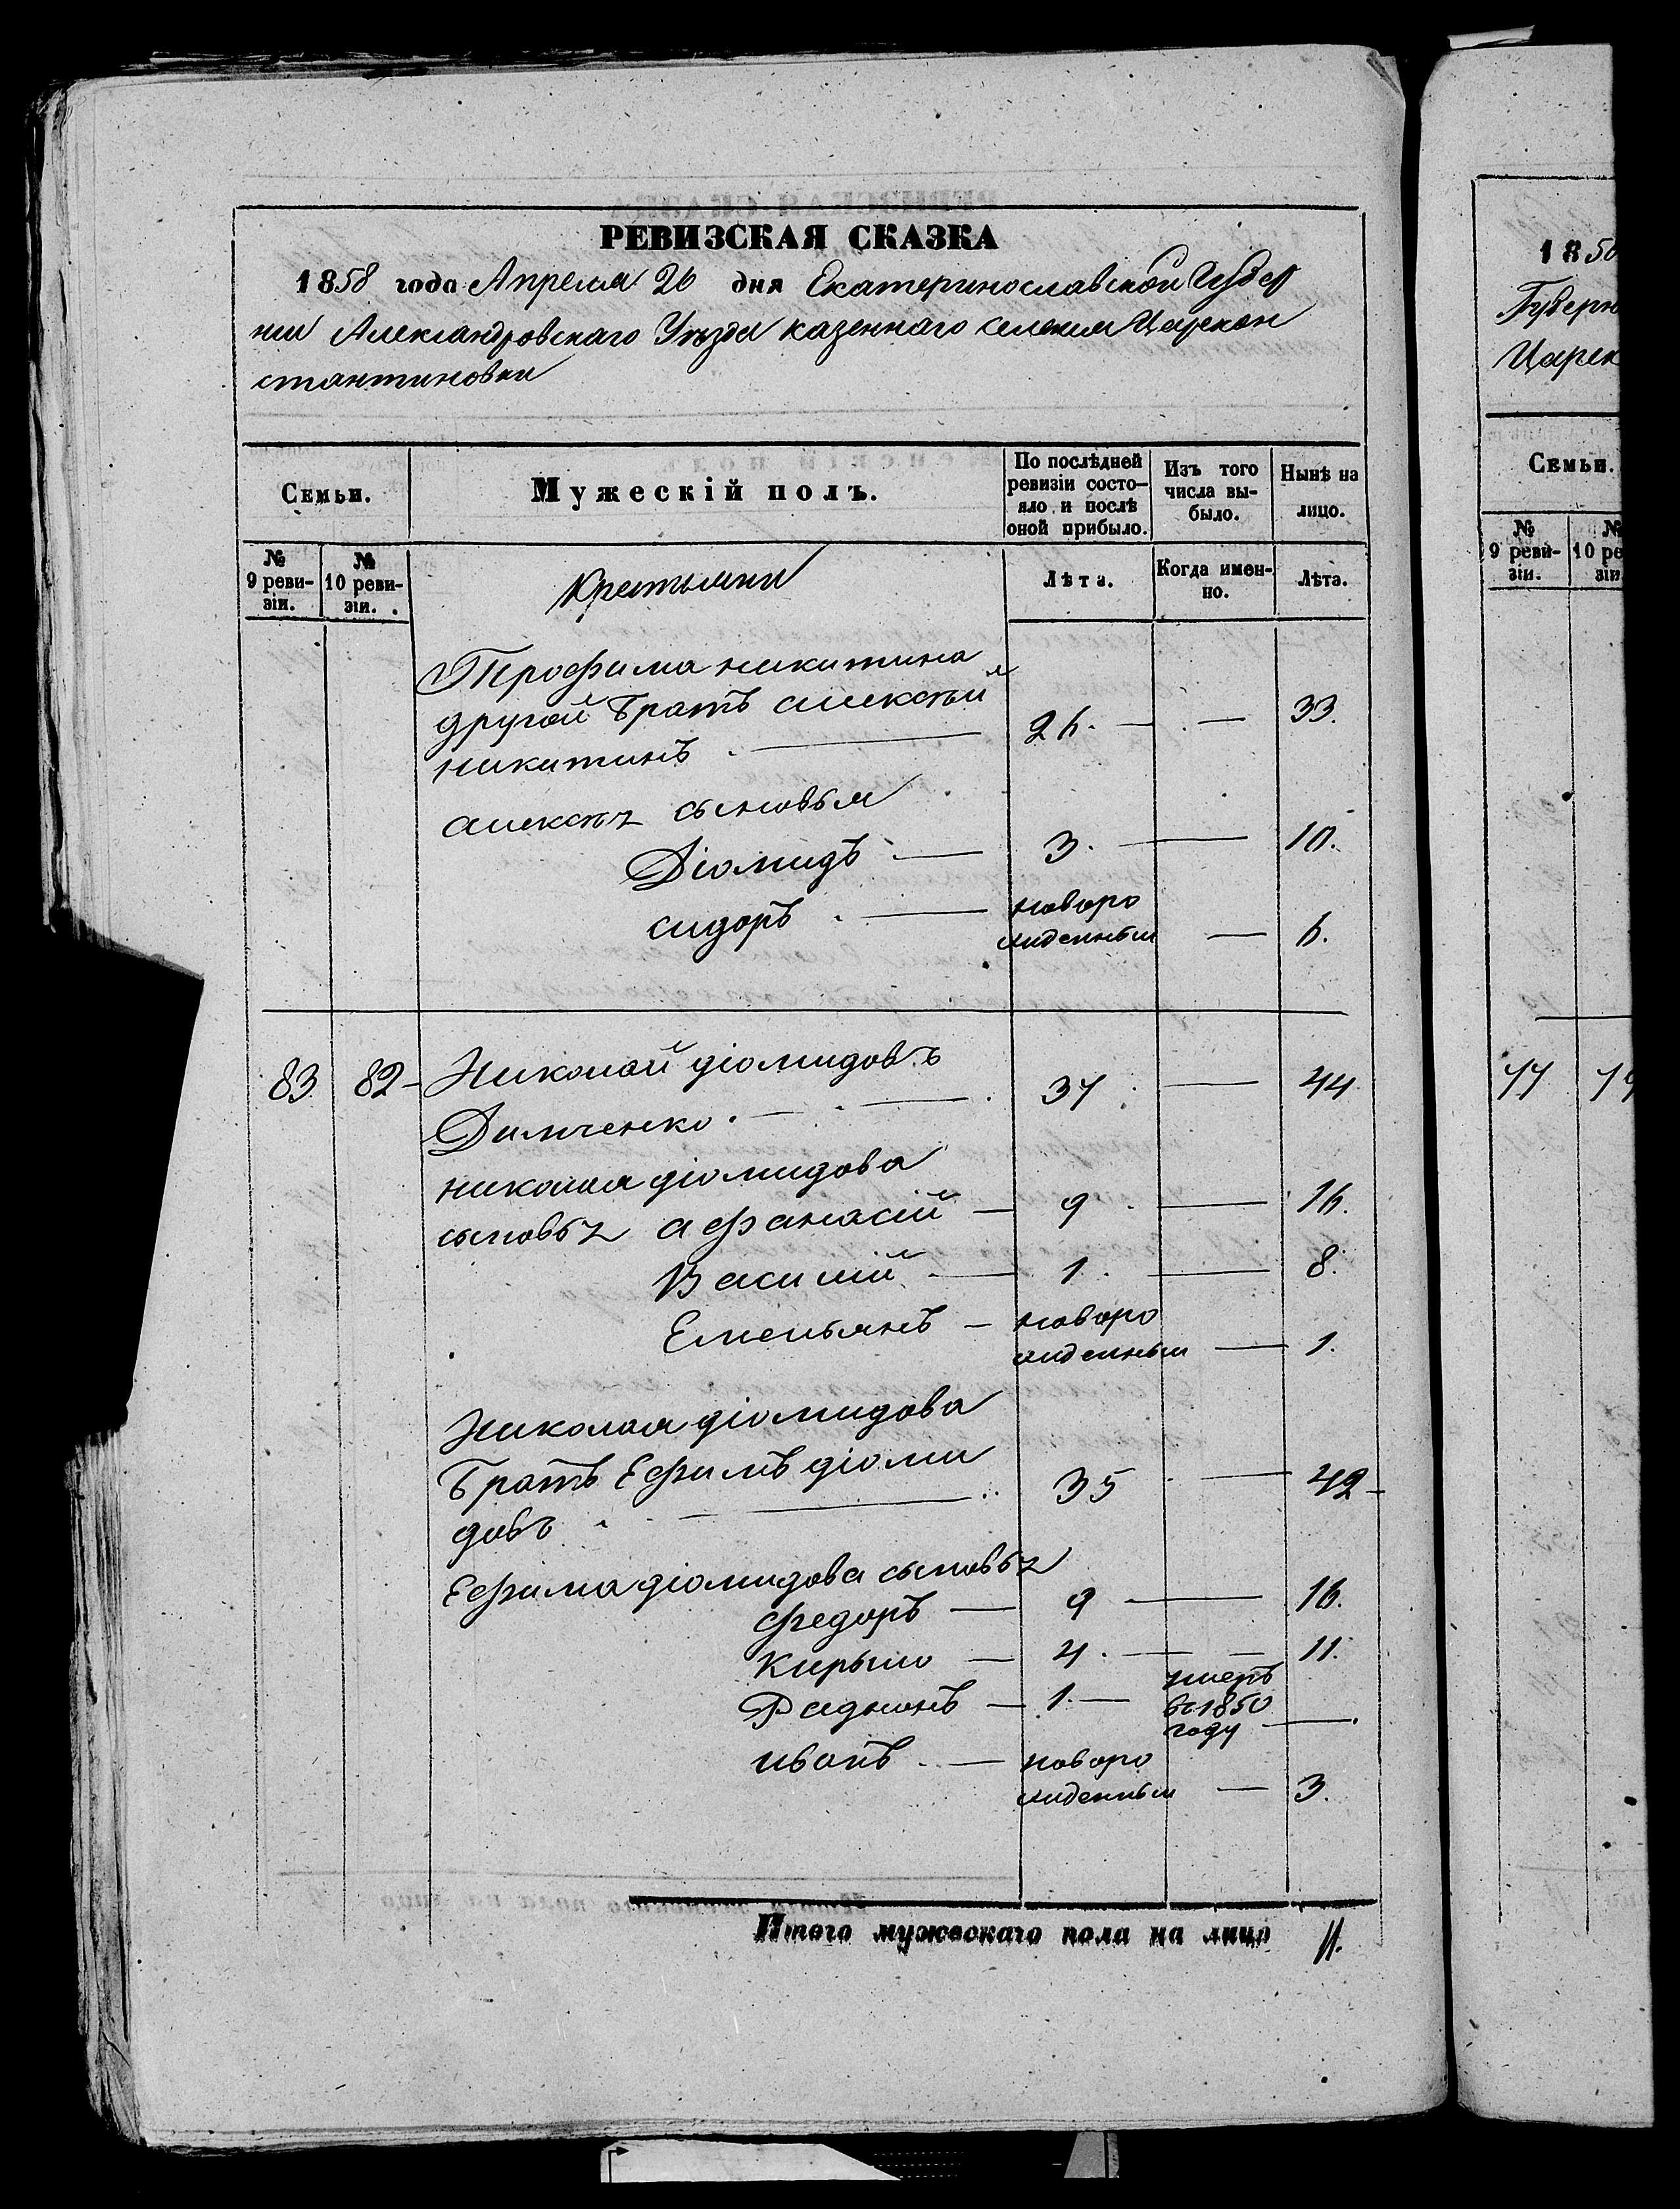 РЕВИЗСКАЯ СКАЗКА
1858 года Апреля 26 дня Екатеринославской Губер
нии Александровскаго Уѣзда казеннаго селенія Царекон
стантиновки
Семьи.
Мужескій полъ.
По послѣдней ревизіи состо-
яло и послѣ
оной прибыло.
Изъ того
числа вы-
было.
Нынѣ на
лицо.
№
9 реви-
зіи.
№
10 реви-
зіи.
Крестьяни
Лѣта.
Когда имен-
но.
Лѣта.
Трофима никитина
другой братъ алексѣй
никитинъ . — 26. — — 33.
алексѣя сыновья
Діомидъ — 3. — 10.
сидоръ . — новоро
жденный — 6.
83 82 Николай діомидовъ
Дымченко . — 37 — 44
николая діомидова
сыновья афанасій — 9 — 16.
Василій — 1. — 8.
Емельянъ — новоро
жденный — 1.
Николая діомидова
братъ Ефимъ діоми
довъ — 35 — 42
Ефима діомидова сыновья
федоръ — 9 — 16.
Кирыло — 4. — — 11.
Радионъ — 1. — умеръ
въ 1850
году —
иванъ — новоро
жденный — 3.
Итого мужескаго пола на лицо 11.
1850
Губерн
Царек
Семьи.
№
9 реви-
зіи.
№
10 ре
зіи
77